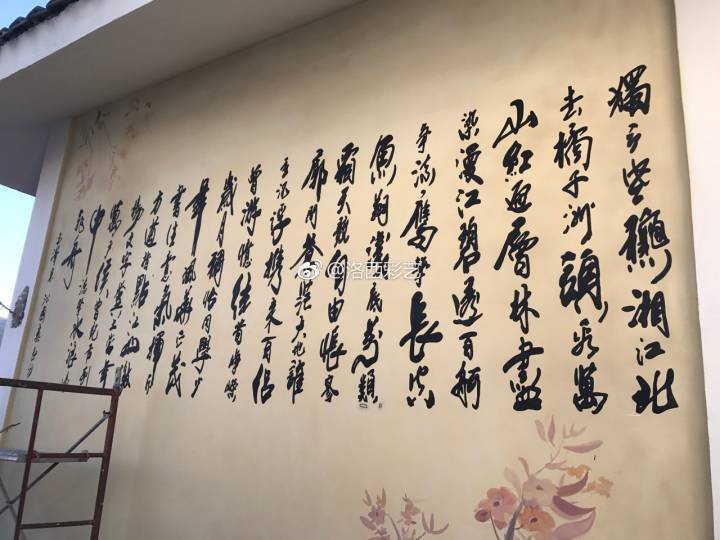 獨立寒秋湘江北
去橘子洲頭看萬
山紅遍層林盡
染漫江碧透百舸
爭流鷹擊長空
魚翔淺底萬類
霜天競自由悵寥
廓問蒼茫大地誰
主沉浮攜來百侶
曾游憶往昔崢嶸
歲月稠恰同學少
年風華正茂
書生意氣揮斥
方遒指點江山激
揚文字糞土當年
萬戶侯曾記否到
中流擊水浪遏
飛舟
@洛西彩艺